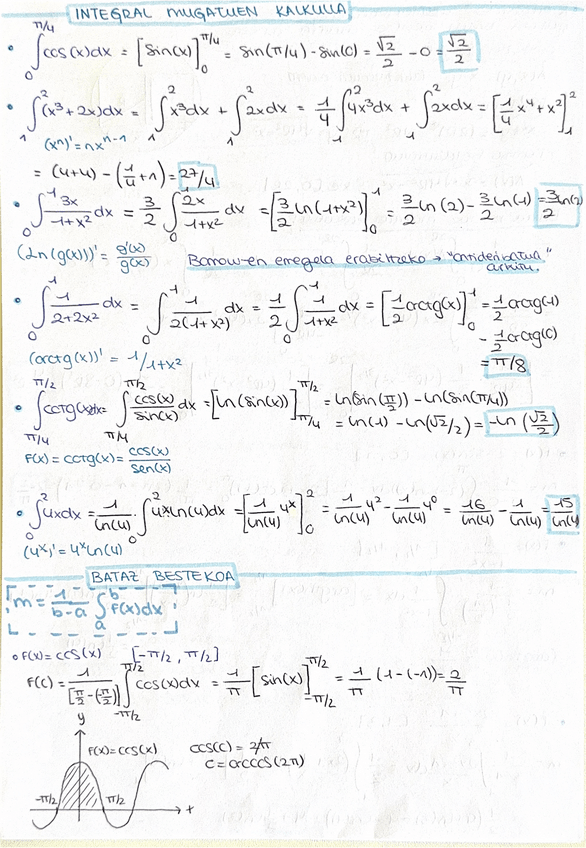 INTEGRAL MUGATUEN KALKULUA
• ∫₀^{π/4} cos(x)dx = [sin(x)]₀^{π/4} = sin(π/4) - sin(0) = √2/2 - 0 = √2/2
• ∫₁² (x³+2x)dx = ∫₁² x³dx + ∫₁² 2xdx = 1/4 ∫₁² 4x³dx + ∫₁² 2xdx = [1/4 x⁴ + x²]₁²
(xⁿ)' = nxⁿ⁻¹
= (4+4) - (1/4 + 1) = 27/4
• ∫₀¹ 3x/(1+x²) dx = 3/2 ∫₀¹ 2x/(1+x²) dx = [3/2 ln(1+x²)]₀¹ = 3/2 ln(2) - 3/2 ln(1) = 3/2 ln(2)
(Ln(g(x)))' = g'(x)/g(x)
Barrow-en erregela erabiltzeko → "antideribatua" atera.
• ∫₀¹ 1/(2+2x²) dx = ∫₀¹ 1/(2(1+x²)) dx = 1/2 ∫₀¹ 1/(1+x²) dx = [1/2 arctg(x)]₀¹ = 1/2 arctg(1) - 1/2 arctg(0)
(arctg(x))' = 1/1+x²
= π/8
• ∫_{π/4}^{π/2} cotg(x)dx = ∫_{π/4}^{π/2} cos(x)/sin(x) dx = [ln(sin(x))]_{π/4}^{π/2} = ln(sin(π/2)) - ln(sin(π/4))
= ln(1) - ln(√2/2) = -ln(√2/2)
F(x) = cotg(x) = cos(x)/sen(x)
• ∫₀² 4xdx = 1/ln(4) · ∫₀² 4ˣ ln(4)dx = [1/ln(4) 4ˣ]₀² = 1/ln(4) 4² - 1/ln(4) 4⁰ = 16/ln(4) - 1/ln(4) = 15/ln(4)
(4ˣ)' = 4ˣ Ln(4)
BATAZ BESTEKOA
m = 1/(b-a) ∫ₐᵇ f(x)dx
• F(x) = cos(x) [-π/2, π/2]
F(c) = 1/[π/2-(-π/2)] ∫_{-π/2}^{π/2} cos(x)dx = 1/π [sin(x)]_{-π/2}^{π/2} = 1/π (1-(-1)) = 2/π
y
F(x) = cos(x)
cos(c) = 2/π
c = arccos(2π)
-π/2
π/2
x